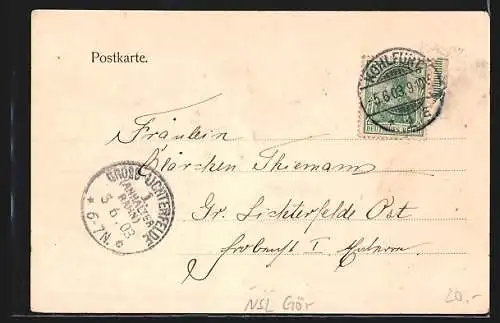 Postkarte.
KOHLFURT
5.6.03.9-10V.
DEUTSCHES REICH
Fräulein
Clärchen Thiemann
Gr. Lichterfelde Ost
GROSS-LICHTERFELDE
1
(ANHALTER
BAHN)
5.6.03
* 6-7N. c
NSL Gör
20.-